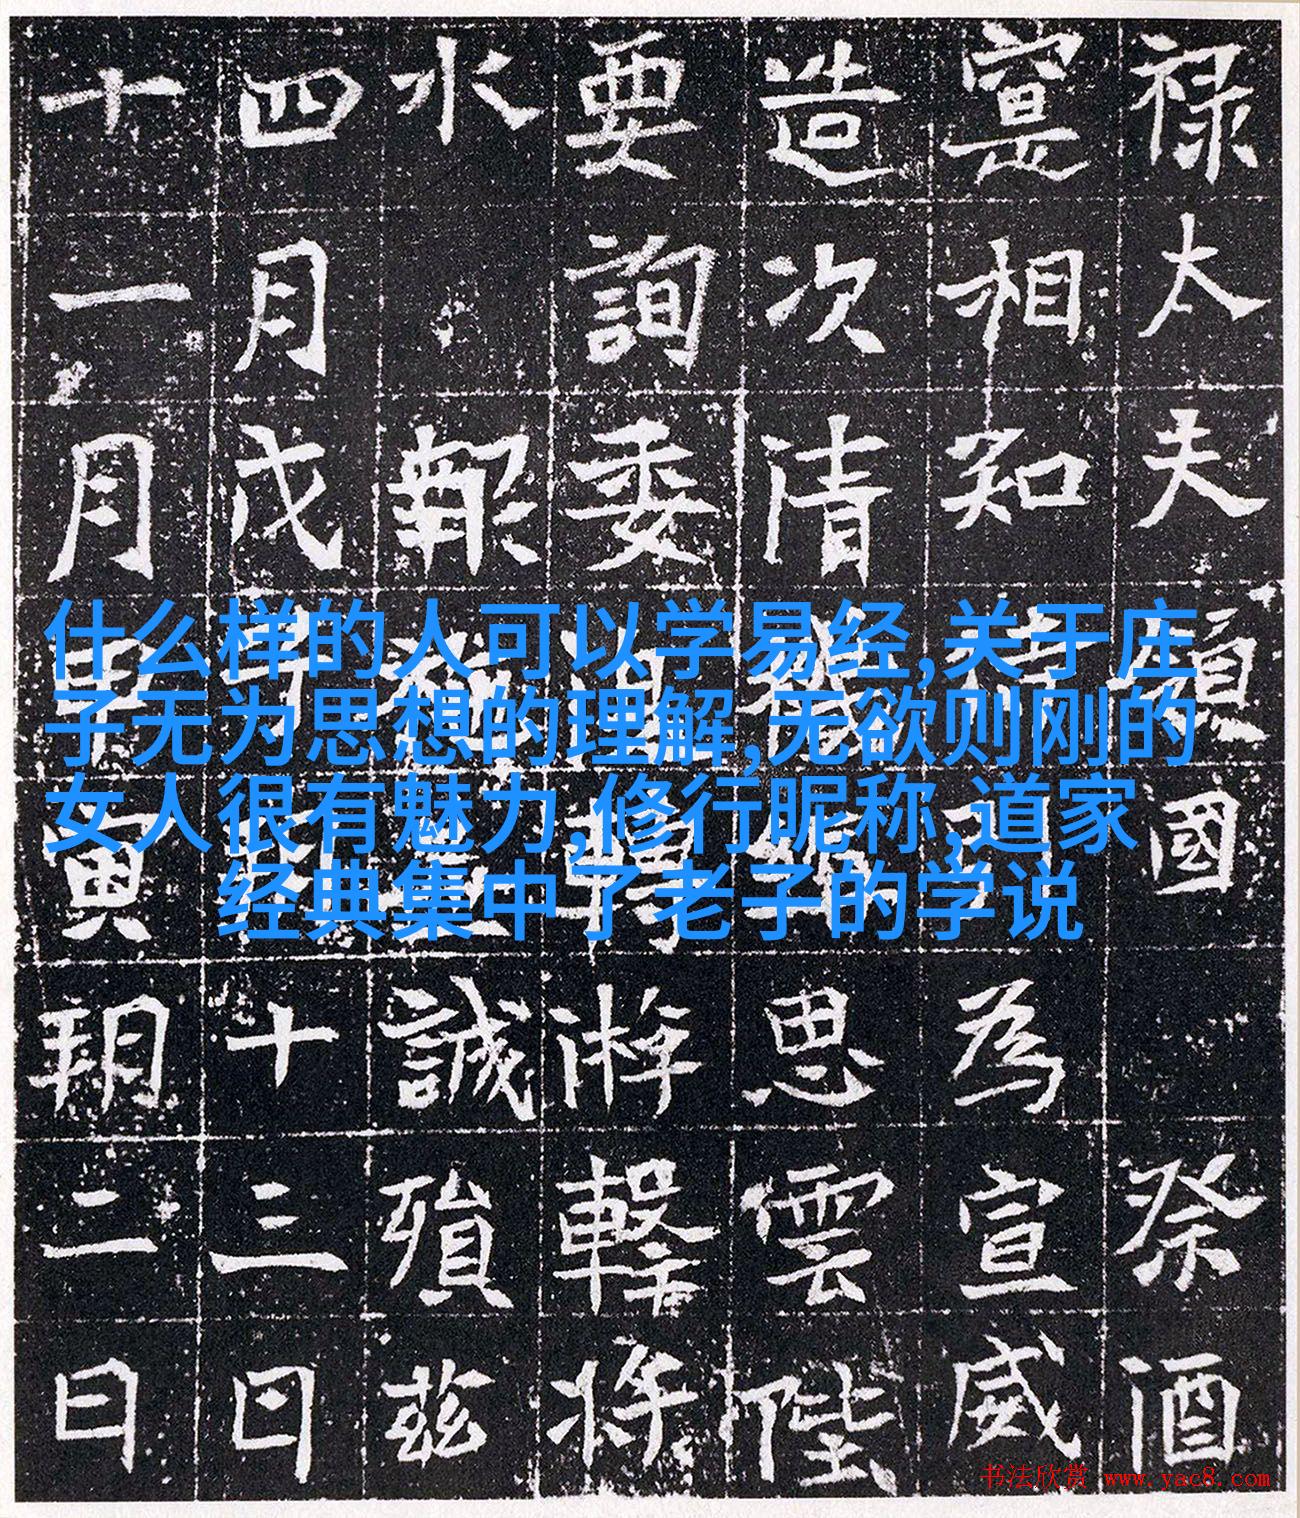 什么样的人可以学易经,关于庄
子无为思想的理解,无欲则刚的
女人很有魅力,修行昵称,道家
经典集中了老子的学说
禄太夫國祭酒
寔相知為宣威
造次清思雲陛
要詢委游擊将
水報誠殞兹
四月戊十三日
十一月寅朔二日
书法欣赏 www.yac8.com